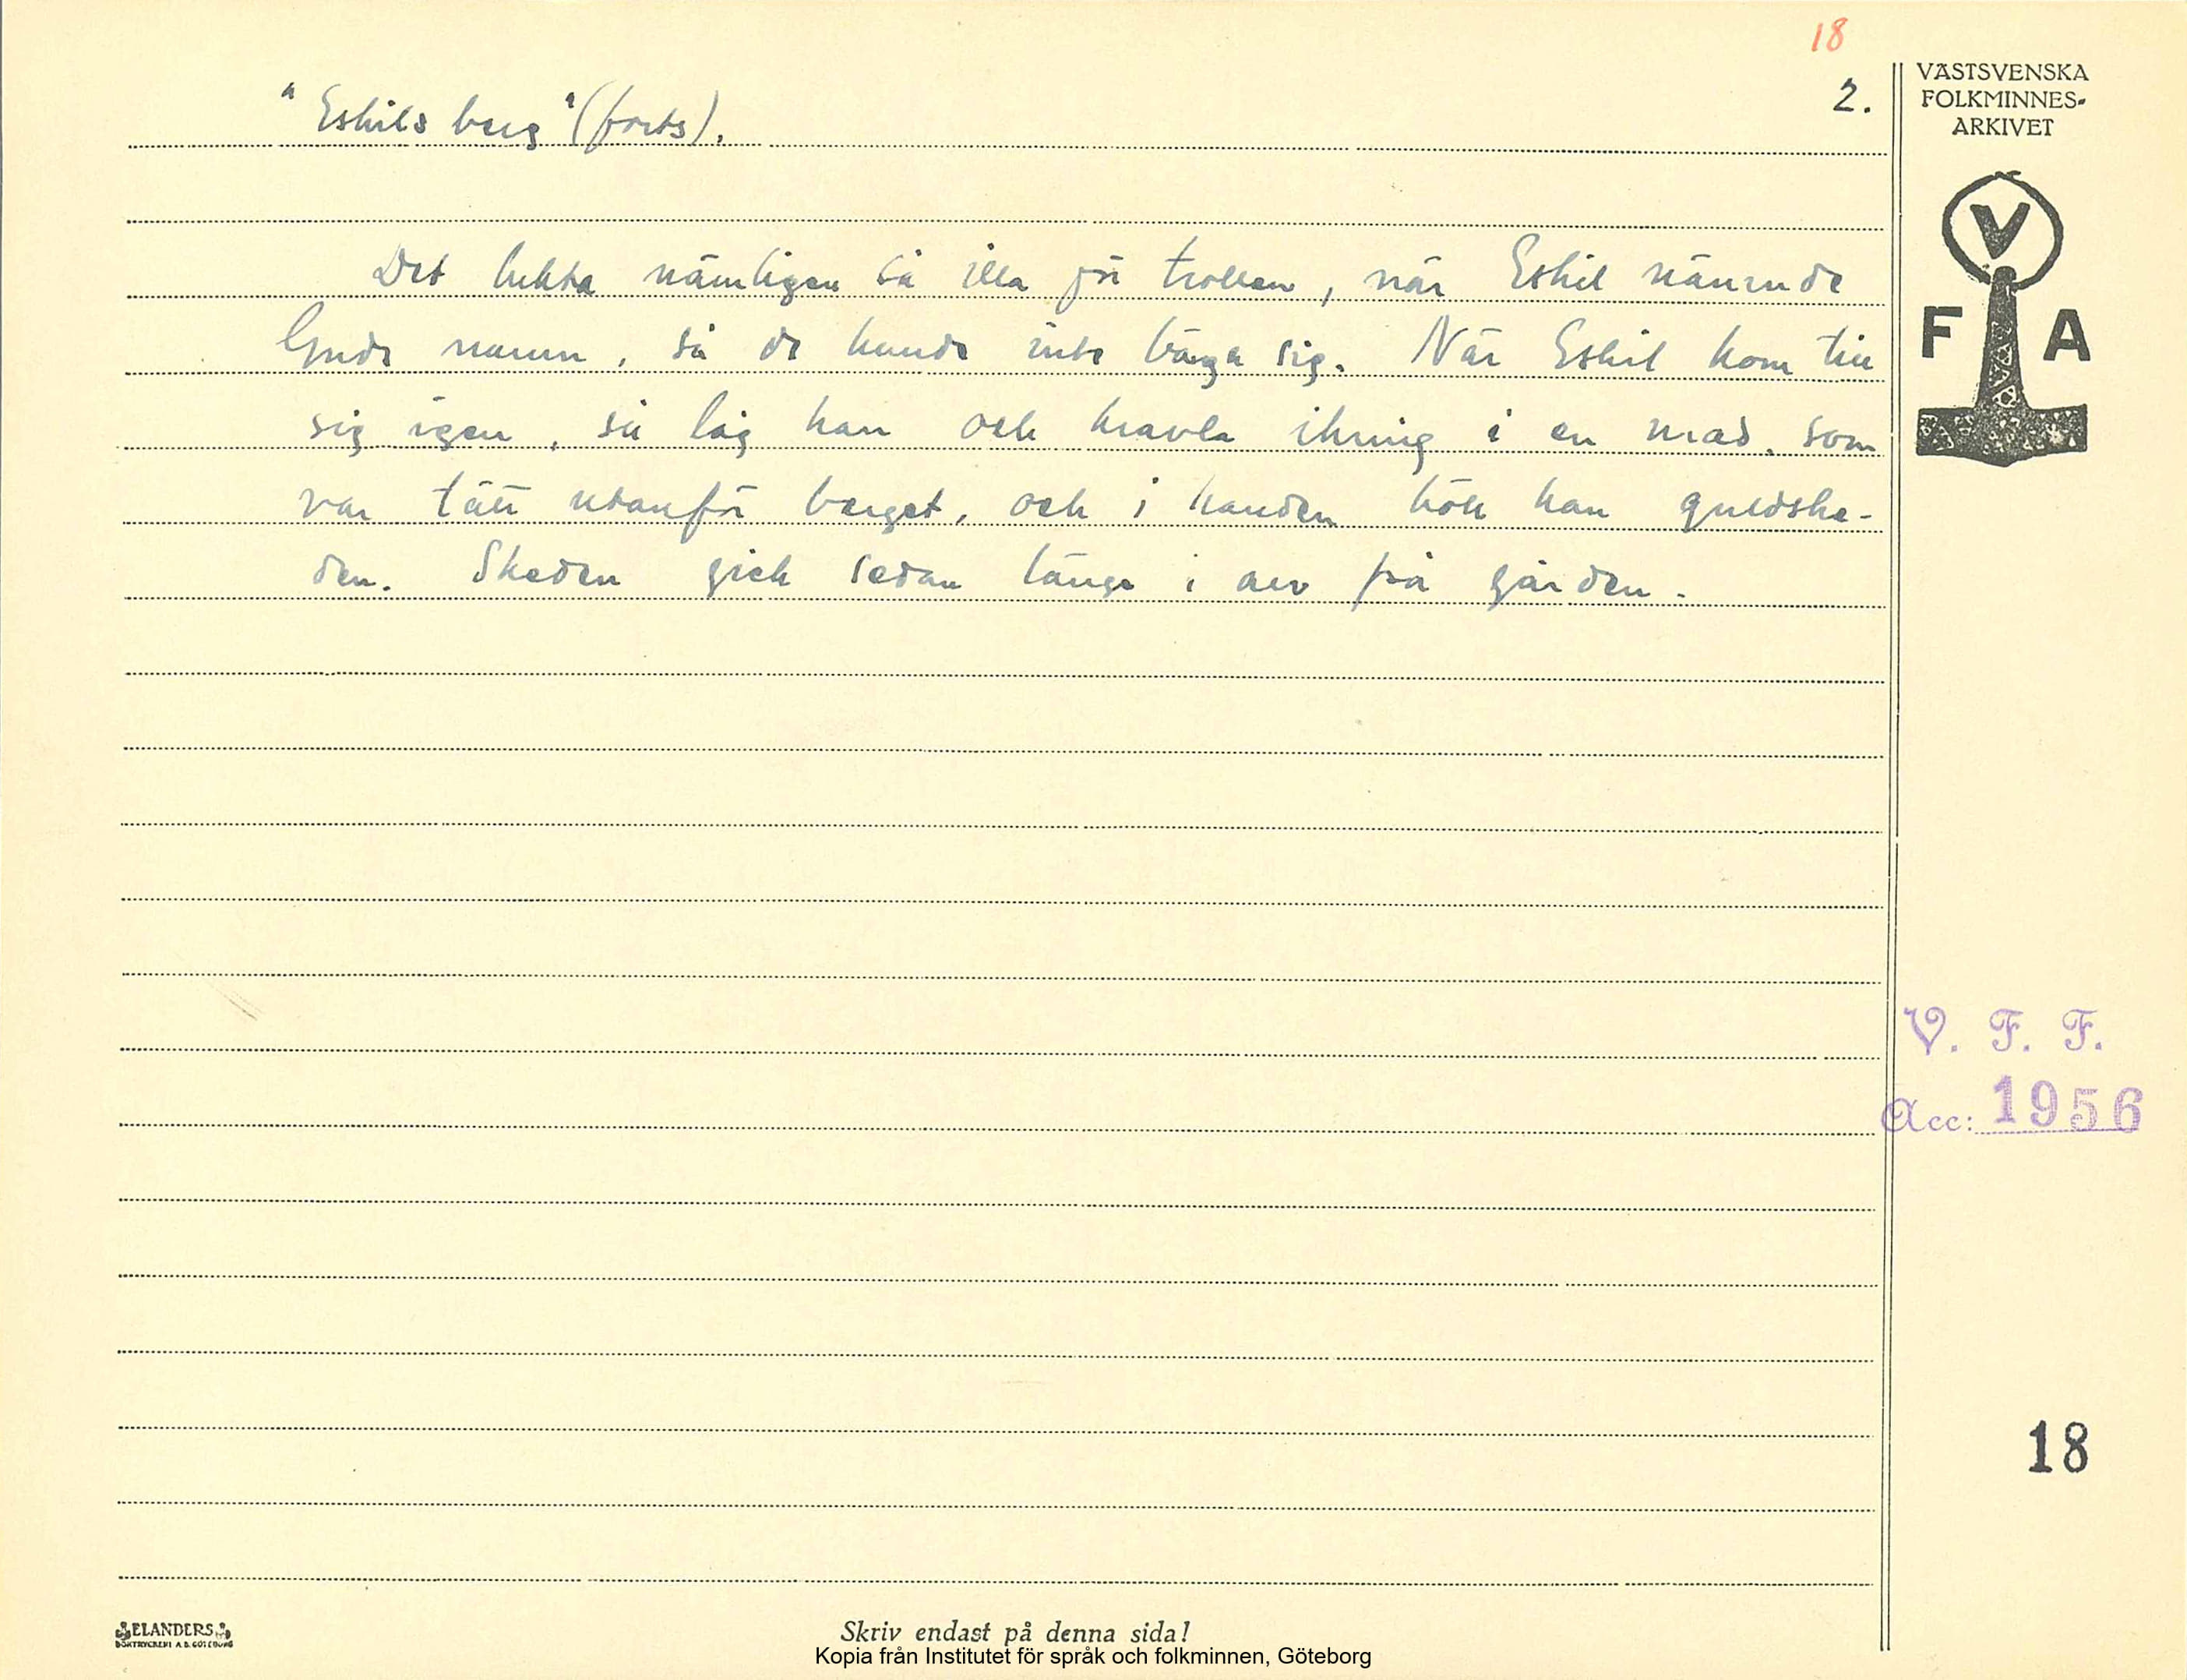 18
2.
"Eskils berg" (forts).
Det lukta nämligen så illa för trollen, när Eskil nämnde
Guds namn, så de kunde inte bärga sig. När Eskil kom till
sig igen, så låg han och kravla ikring i en mad, som
var tätt utanför berget, och i handen höll han guldske-
den. Skeden gick sedan länge i arv på gården.
VÄSTSVENSKA
FOLKMINNES-
ARKIVET
V
F A
V. F. F.
Acc: 1956
18
ELANDERS
BOKTRYCKERI A.B. GÖTEBORG
Skriv endast på denna sida!
Kopia från Institutet för språk och folkminnen, Göteborg